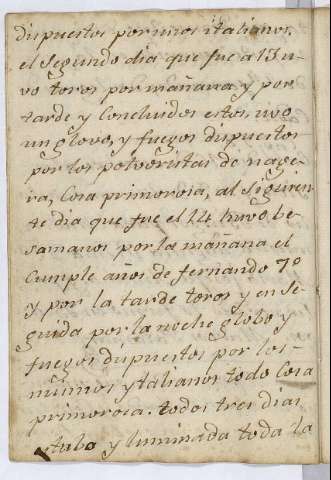 dispuestos por unos italianos,
el segundo dia que fue al 13 u-
vo toros por mañana y por
tarde y concluidos estos, uvo
un glovo, y fuegos dispuestos
por los polvoristas de nage-
ra, Cosa primorosa, al siguien-
te dia que fue el 14 huvo be-
samanos por la mañana el
Cumple años de fernando 7º
y por la tarde toros y en se-
guida por la noche globo y
fuegos dispuestos por los
mismos ytalianos todo Cosa
primorosa. todos tres dias
stubo yluminada toda la